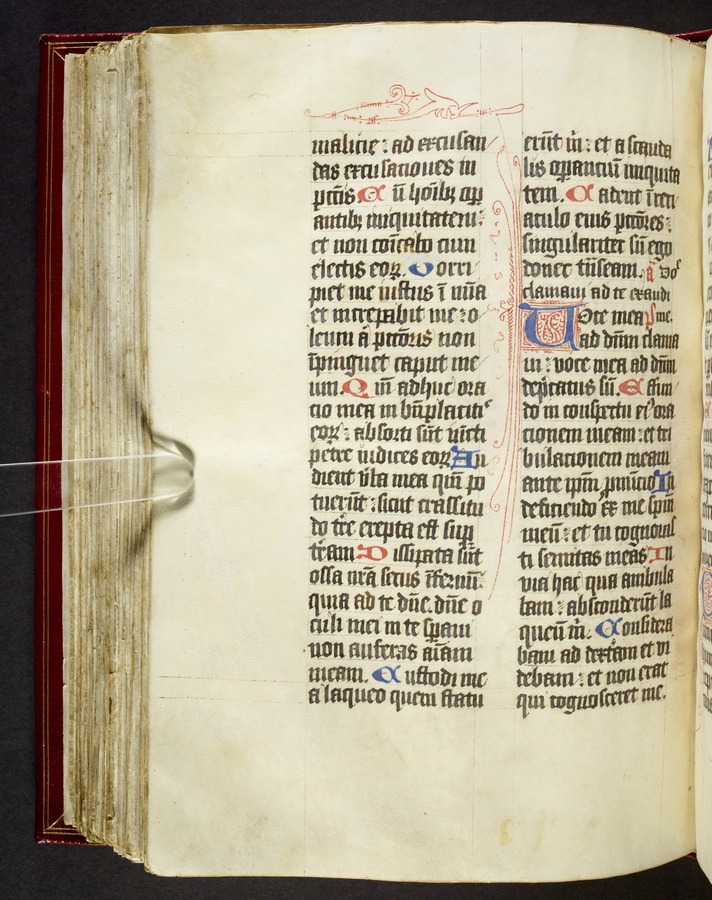 malicie : ad excusan
das excusationes in
pctis C ū hoībz opp
antibz iniquitatem :
et non cōicabo cum
electis eoꝝ. Corri
piet me iustus ī mīa
et increpabit me : o
leum ā pctoris non
īpinguet caput me
um. Qm̄ adhuc ora
cio mea in bn̄placitis
eoꝝ : absorti sūt iūcti
petre iudices eoꝝ Au
dient v̄ba mea qm̄ po
tuerūt : sicut crassitu
do tr̄e erepta est sup̄
tr̄am Dissipata sūt
ossa nr̄a secus īfernū :
quia ad te dn̄e. dn̄e o
culi mei in te sp̄aui
non auferas aīam
meam. Custodi me
a laqueo quem statu
erūt m̄ : et a scanda
lis opantiū iniquita
tem. Cadent ī reti
aculo eius pctōres :
singulariter sū ego
donec tn̄seam.
clamaui ad te exaudi
Uoce mea ps me.
ad dn̄m clama
ui : voce mea ad dn̄m
dep̄catus sū. Effun
do in conspectu ei9 ora
cionem meam : et tri
bulacionem meam
ante ip̄m pnūcio In
deficiendo ex me sp̄m
meū : et tu cognouis
ti semitas meas In
via hac qua ambula
bam : absconderūt la
queū m̄. Considera
bam ad dextram et vi
debam : et non erat
qui cognosceret me.